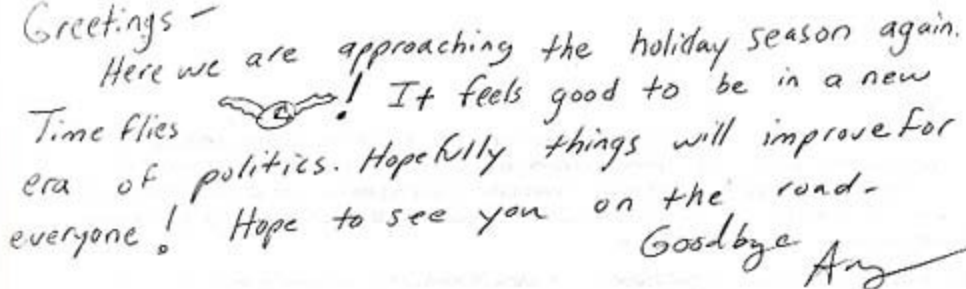 Greetings –
Here we are approaching the holiday season again.
Time flies ! It feels good to be in a new
era of politics. Hopefully things will improve for
everyone! Hope to see you on the road-
Goodbye
Amy